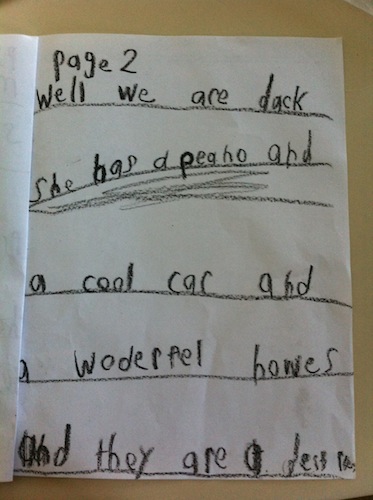 page 2
Well we are dack
she has a peano and
a cool car and
a woderfel howes
and they are a